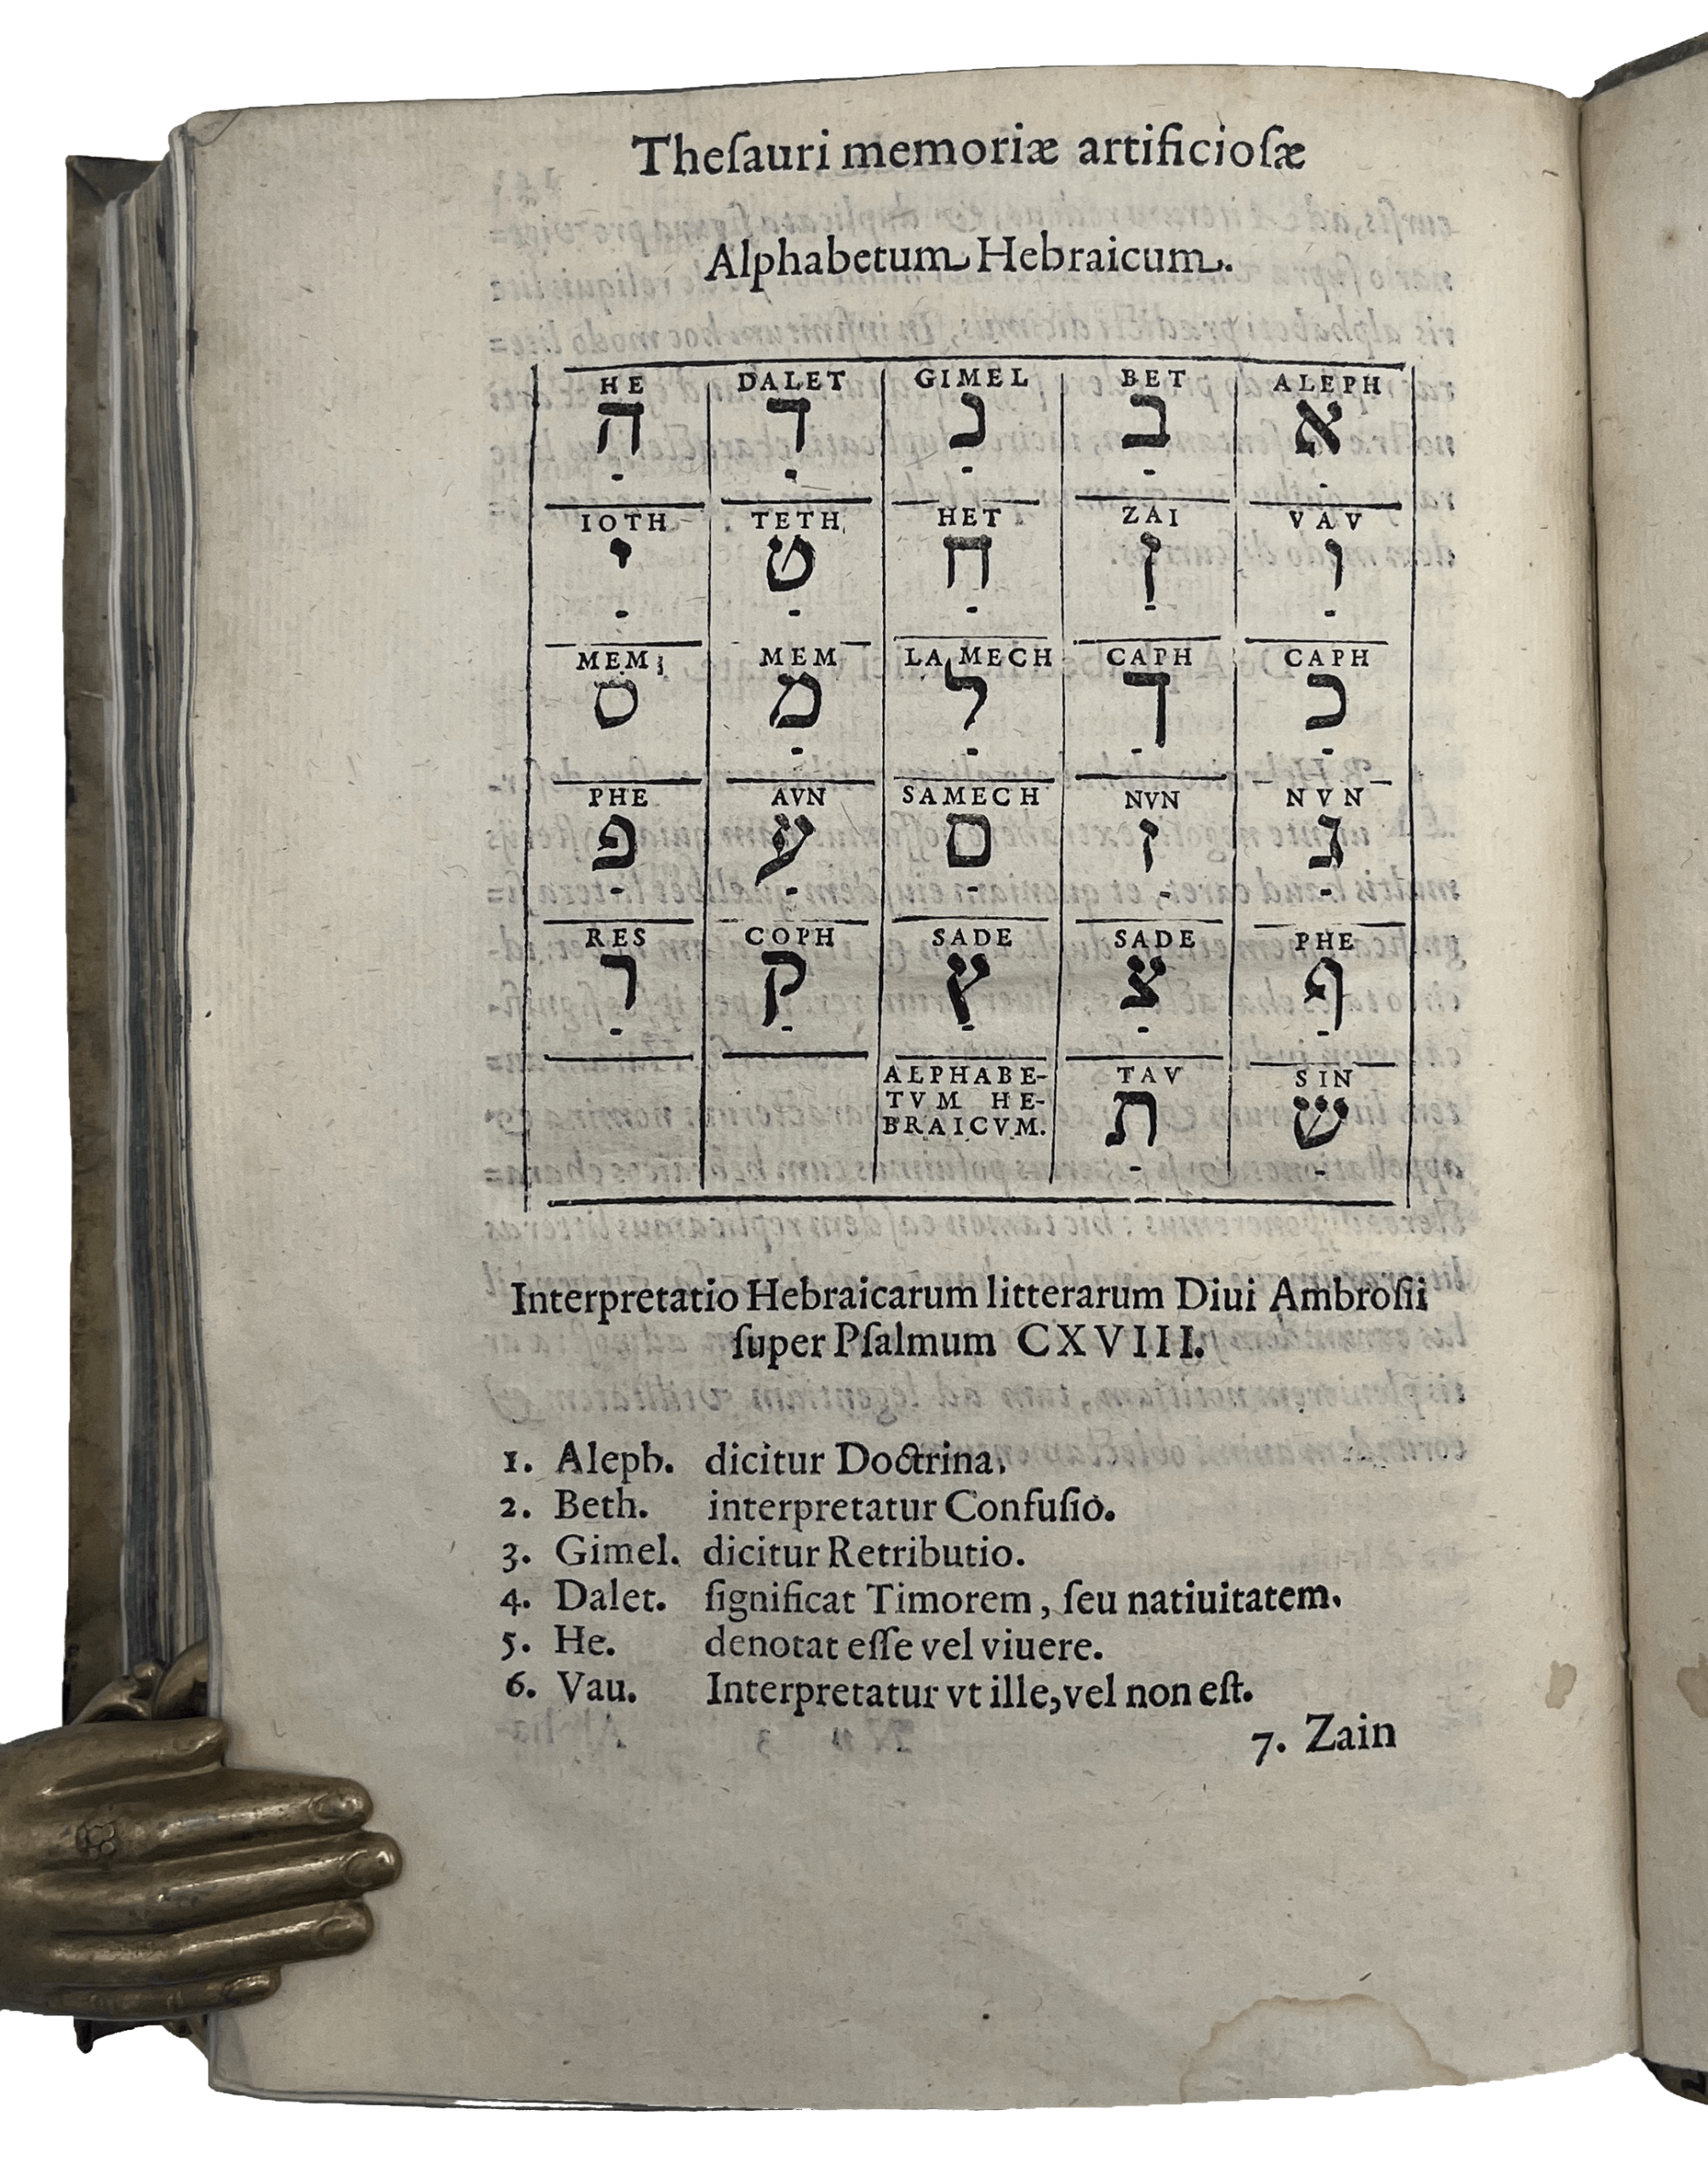 Theſauri memoriæ artificioſæ
Alphabetum Hebraicum.
HE DALET GIMEL BET ALEPH
א ב ג ד ה
IOTH TETH HET ZAI VAV
ו ז ח ט י
MEM MEM LAMECH CAPH CAPH
כ ך ל מ ס
PHE AVN SAMECH NVN NVN
נ ן ם ע פ
RES COPH SADE SADE PHE
ף צ ץ ק ר
ALPHABE- TAV SIN
TVM HE-
BRAICVM.
ש ת
Interpretatio Hebraicarum litterarum Diui Ambroſii
ſuper Pſalmum CXVIII.
1. Aleph. dicitur Doctrina.
2. Beth. interpretatur Confuſio.
3. Gimel. dicitur Retributio.
4. Dalet. ſignificat Timorem, ſeu natiuitatem.
5. He. denotat eſſe vel viuere.
6. Vau. Interpretatur vt ille, vel non eſt.
7. Zain